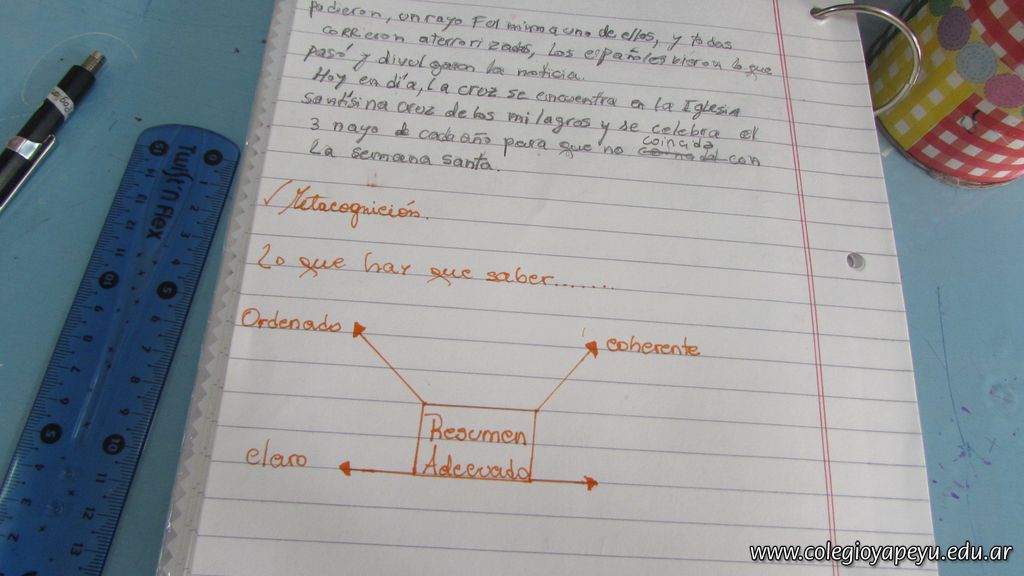 pudieron, un rayo Fulmino a uno de ellos, y todos
corrieron aterrorizados, Los españoles vieron lo que
pasó y divulgaron la noticia.
Hoy en día, La cruz se encuentra en la Iglesia
santísina cruz de los milagros y se celebra el
3 mayo de cada año para que no coincida con
La semana santa.
✓ Metacognición.
Lo que hay que saber.......
Ordenado
coherente
Resumen
Adecuado
claro
TWIST'N FLEX
www.colegioyapeyu.edu.ar